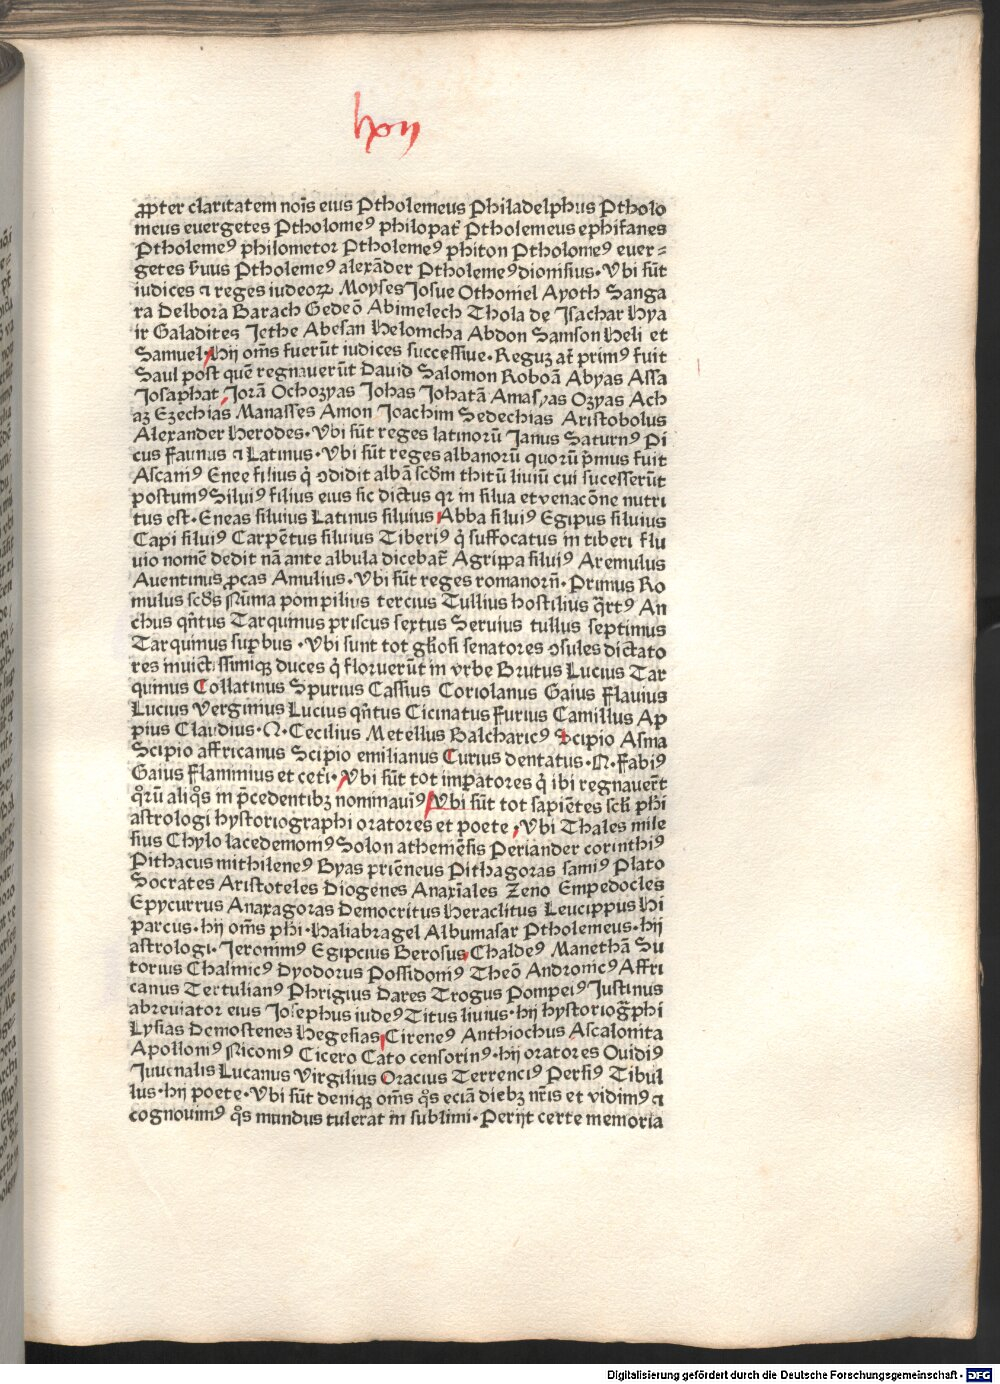 hon
ꝓpter claritatem nois̄ eius Ptholemeus Philadelphus Ptholo
meus euergetes Ptholomeꝰ philopat̄ Ptholemeus ephifanes
Ptholemeꝰ philometor Ptholemeꝰ phiton Ptholomeꝰ euer⸗
getes Ptholemeꝰ alexāder Ptholemeꝰ dionisius. Vbi sūt
iudices ⁊ reges iudeoꝝ Moyses Iosue Othoniel Ayoth Sanga
ra Delbora Barach Gedeō Abimelech Thola de Isachar Hya
ir Galadites Icthe Abesan Helomcha Abdon Samson Heli et
Samuel Hij om̄s fuerūt iudices successiue. Reguꝫ at̄ primꝰ fuit
Saul post quē regnauerūt Dauid Salomon Roboā Abyas Assa
Iosaphat Iorā Ochozyas Iohas Iohatā Amasyas Ozyas Ach
aꝫ Ezechias Manasses Amon Ioachim Sedechias Aristobolus
Alexander Herodes. Vbi sūt reges latinorū Ianus Saturnꝰ Pi
cus Faunus ⁊ Latinus. Vbi sūt reges albanorū quorū p̄mus fuit
Ascaniꝰ Enee filius q̇ ꝯdidit albā scd̄m thitū liuiū cui sucesserūt
postumꝰ Siluiꝰ filius eius sic dictus qr in silua et venacōne nutri
tus est. Eneas siluius Latinus siluius Abba siluiꝰ Egipus siluius
Capi siluiꝰ Carpētus siluius Tiberiꝰ q̇ suffocatus in tiberi flu
uio nomē dedit nā ante albula dicebat̄ Agrippa siluiꝰ Aremulus
Auentinus ꝓcas Amulius. Vbi sūt reges romanorū. Primus Ro
mulus scd̄s Nūma pompilius tercius Tullius hostilius q̄rtꝰ An
chus qn̄tus Tarquinius priscus sextus Seruius tullus septimus
Tarquinius suꝑbus. Vbi sunt tot gl̄iosi senatores ꝯsules dictato
res inuictissimiqꝫ duces q̇ floruerūt in vrbe Brutus Lucius Tar
quinius Collatinus Spurius Cassius Coriolanus Gaius Flauius
Lucius Verginius Lucius qn̄tus Cicinatus Furius Camillus Ap
pius Claudius. Q. Cecilius Metellus Balcharicꝰ Scipio Asina
Scipio affricanus Scipio emilianus Curius dentatus. Q. Fabiꝰ
Gaius Flaminius et cet̄i. Vbi sūt tot imꝑatores q̇ ibi regnauer̄t
qͦrū aliqͦs in p̄cedentibꝫ nominauiꝰ Vbi sūt tot sapiētes scl̄i phi
astrologi hystoriographi oratores et poete. Vbi Thales mile
sius Chylo lacedemoniꝰ Solon atheniēsis Periander corinthiꝰ
Pithacus mithileneꝰ Byas priēneus Pithagoras samiꝰ Plato
Socrates Aristoteles Diogenes Anaxīales Zeno Empedocles
Epycurrus Anaxagoras Democritus Heraclitus Leucippus Hi
parcus. hij om̄s phi. Haliabragel Albumasar Ptholemeus. hij
astrologi. Ieronimꝰ Egipcius Berosus Chaldeꝰ Manethā Su
torius Chalmicꝰ Dyodorus Possidoniꝰ Theō Andronicꝰ Affri
canus Tertulianꝰ Phrigius Dares Trogus Pompeiꝰ Iustinus
abreuiator eius Iosephus iudeꝰ Titus liuius. hij hystoriog̈phi
Lysias Demostenes Hegesias Cireneꝰ Anthiochus Ascalonita
Apolloniꝰ Niconiꝰ Cicero Cato censorinꝰ. hij oratores Ouidiꝰ
Iuuenalis Lucanus Virgilius Oracius Terrenciꝰ Persiꝰ Tibul
lus. hij poete. Vbi sūt deniqꝫ om̄s qͦs eciā diebꝫ nr̄is et vidimꝰ ⁊
cognouimꝰ qͦs mundus tulerat in sublimi. Perijt certe memoria
Digitalisierung gefördert durch die Deutsche Forschungsgemeinschaft - DFG